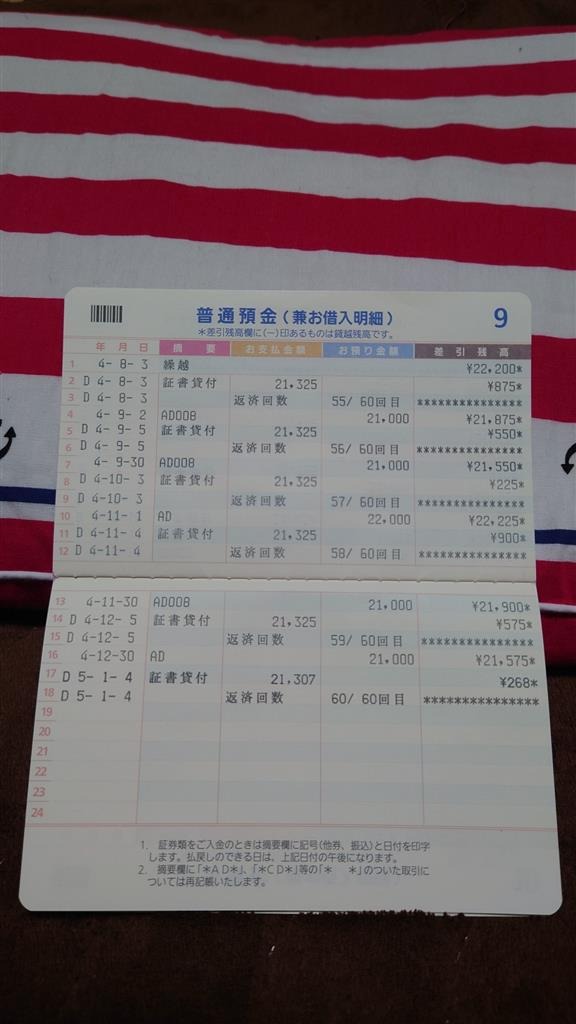 普通預金（兼お借入明細） 9
＊差引残高欄に(－)印あるものは貸越残高です。
年 月 日 摘要 お支払金額 お預り金額 差引残高
1 4- 8- 3 繰越 ¥22,200*
2 D 4- 8- 3 証書貸付 21,325 ¥875*
3 D 4- 8- 3 返済回数 55/ 60回目 ***************
4 4- 9- 2 AD008 21,000 ¥21,875*
5 D 4- 9- 5 証書貸付 21,325 ¥550*
6 D 4- 9- 5 返済回数 56/ 60回目 ***************
7 4- 9-30 AD008 21,000 ¥21,550*
8 D 4-10- 3 証書貸付 21,325 ¥225*
9 D 4-10- 3 返済回数 57/ 60回目 ***************
10 4-11- 1 AD 22,000 ¥22,225*
11 D 4-11- 4 証書貸付 21,325 ¥900*
12 D 4-11- 4 返済回数 58/ 60回目 ***************
13 4-11-30 AD008 21,000 ¥21,900*
14 D 4-12- 5 証書貸付 21,325 ¥575*
15 D 4-12- 5 返済回数 59/ 60回目 ***************
16 4-12-30 AD 21,000 ¥21,575*
17 D 5- 1- 4 証書貸付 21,307 ¥268*
18 D 5- 1- 4 返済回数 60/ 60回目 ***************
19
20
21
22
23
24
1. 証券類をご入金のときは摘要欄に記号(他券、振込)と日付を印字
します。払戻しのできる日は、上記日付の午後になります。
2. 摘要欄に「＊AD＊」、「＊CD＊」等の「＊ ＊」のついた取引に
ついては再記帳いたします。